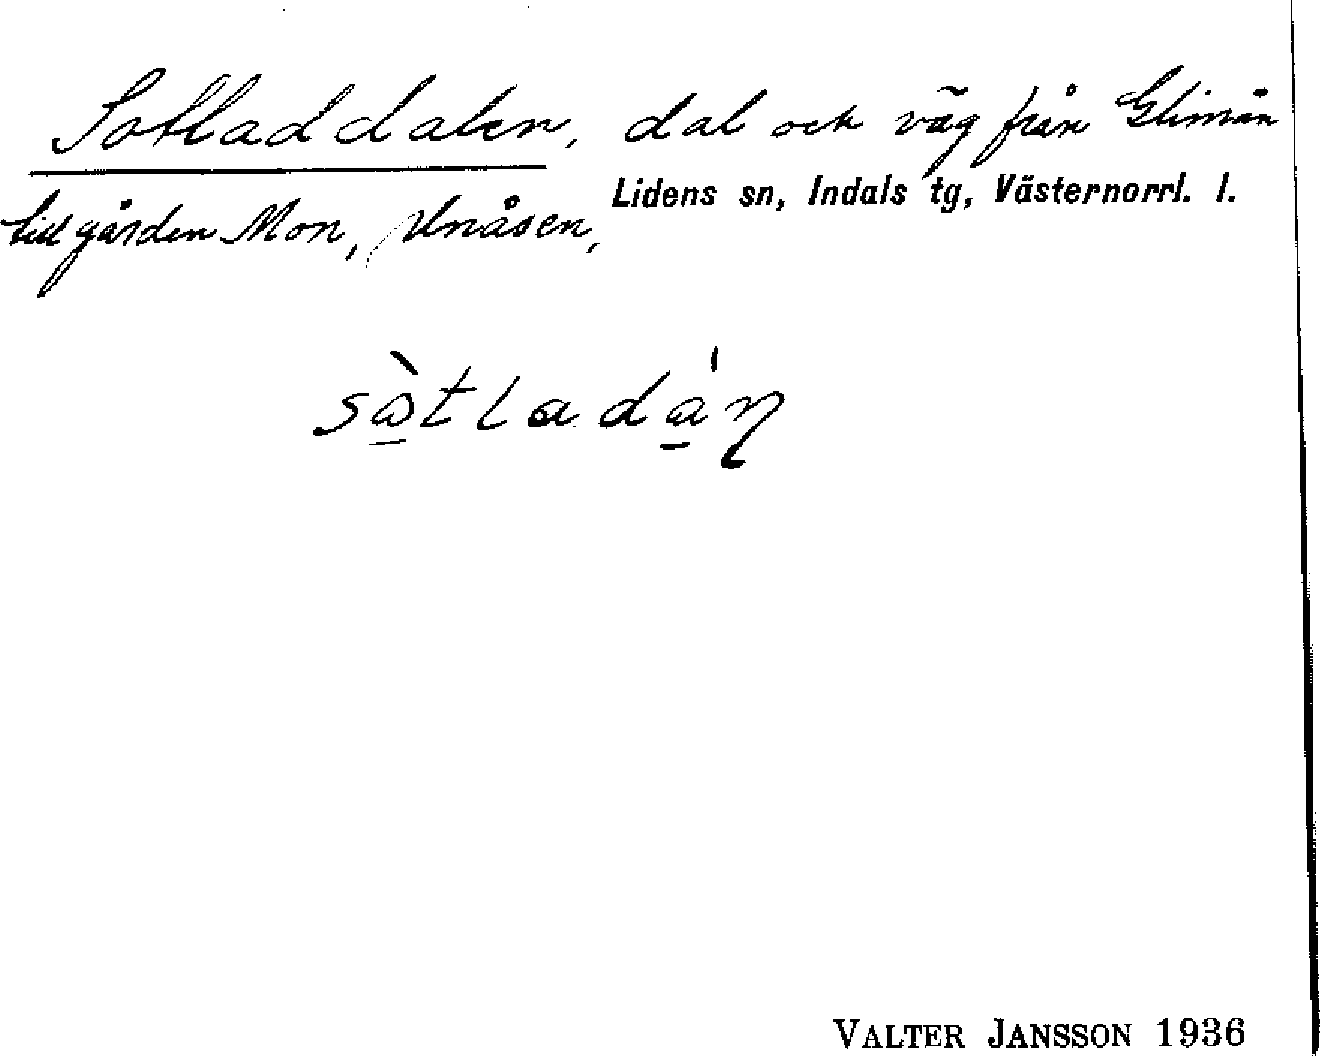 Sotladdalen, dal och väg från Glimån
Lidens sn, Indals tg, Västernorrl. l.
till gården Mon, Unåsen,
sòtladáŋ
VALTER JANSSON 1936